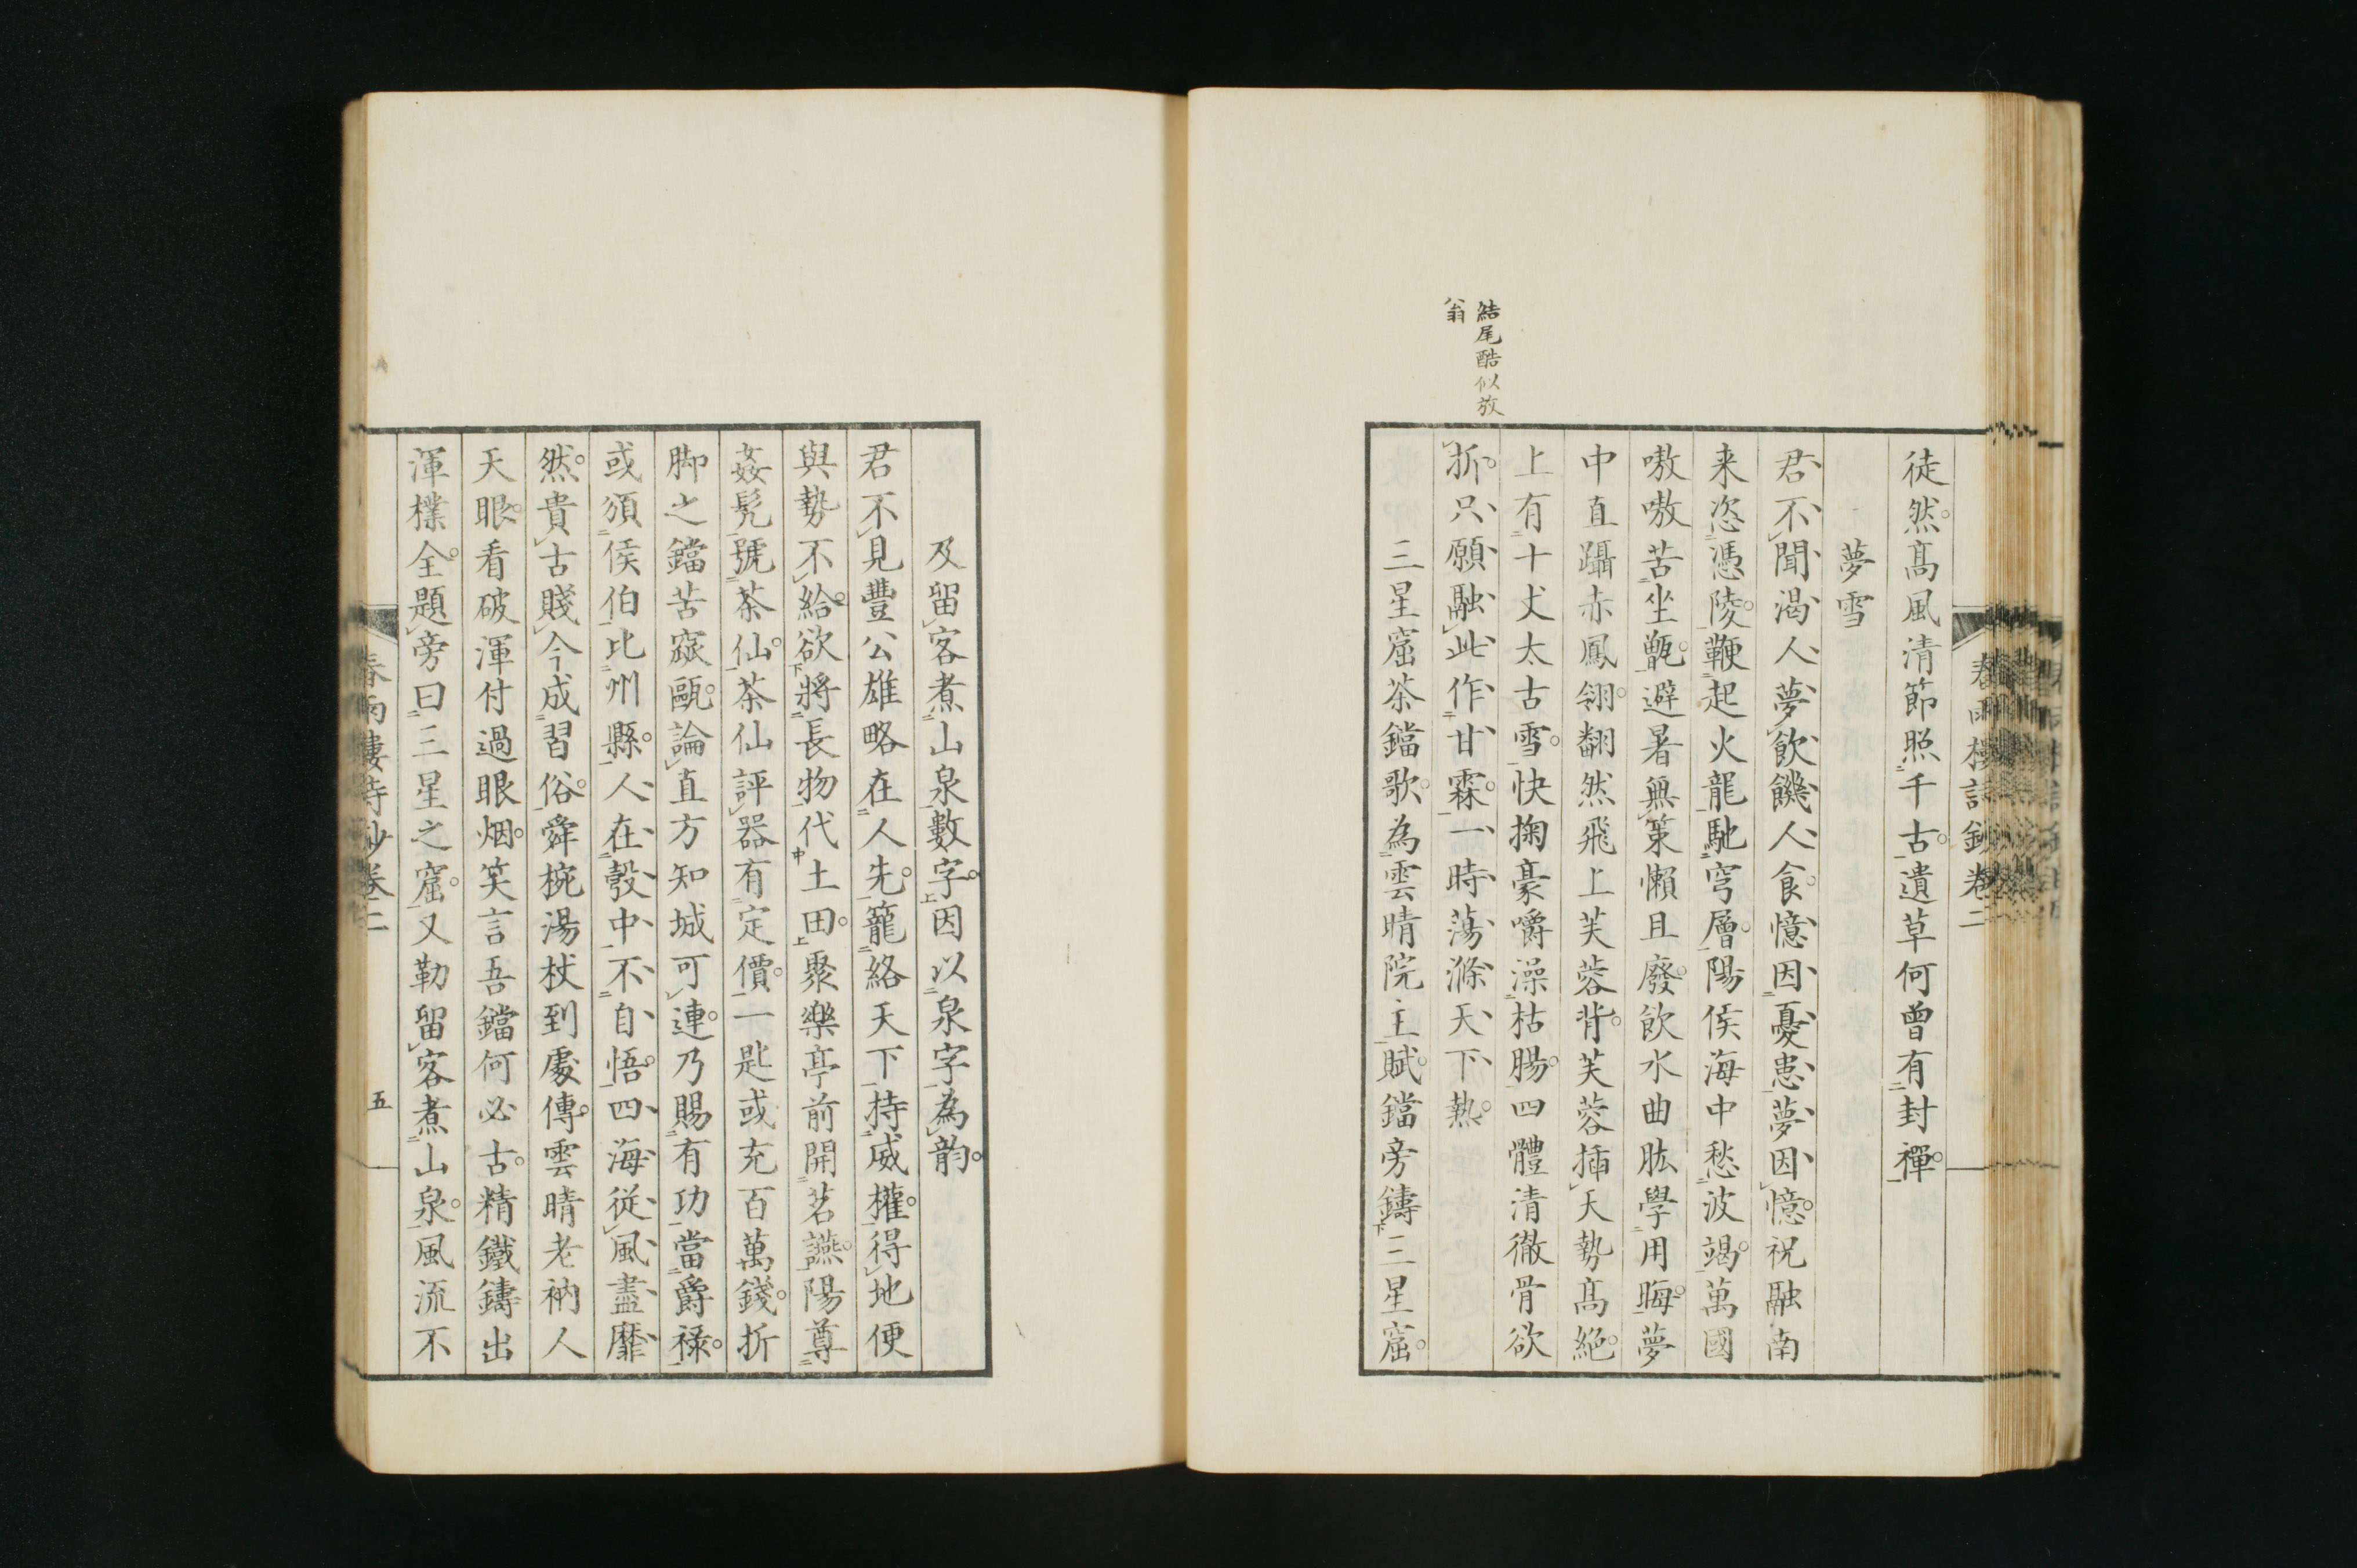 徒然高風清節照千古遺草何曾有封禪
夢雪
君不聞渴人夢飲饑人食憶因憂患夢因憶祝融南
来恣憑陵鞭起火龍馳穹層陽侯海中愁波竭萬國
嗷嗷苦坐甑避暑無策懶且廢飲水曲肱學用晦夢
中直躡赤鳳翎翻然飛上芙蓉背芙蓉插天勢高絶
上有十丈太古雪快掬豪嚼澡枯腸四體清徹骨欲
折只願融此作甘霖一時蕩滌天下熱
結尾酷似放
翁
三星窟茶鐺歌為雲晴院主賦鐺旁鑄三星窟
及留客煮山泉數字因以泉字為韵
君不見豐公雄略在人先籠絡天下持威權得地便
與勢不給欲將長物代土田聚樂亭前開茗讌陽尊
姦髠號茶仙茶仙評器有定價一匙或充百萬錢折
脚之鐺苦窳甌論直方知城可連乃賜有功當爵禄
或須侯伯比州縣人在彀中不自悟四海従風盡靡
然貴古賤今成習俗舜椀湯杖到處傳雲晴老衲人
天眼看破渾付過眼烟笑言吾鐺何必古精鐵鑄出
渾樸全題旁曰三星之窟又勒留客煮山泉風流不
春雨樓詩鈔卷二
五